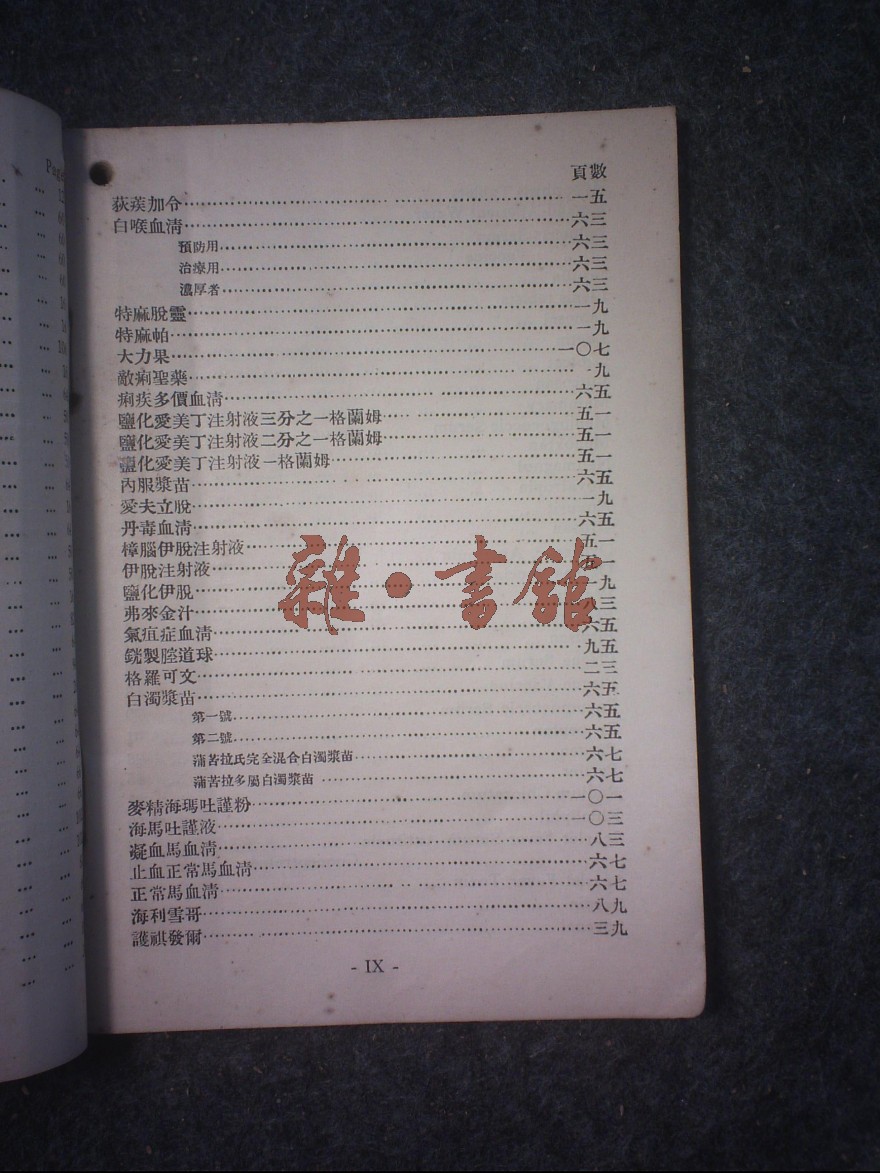 頁數
荻蒺加令 一五
白喉血淸 六三
預防用 六三
治療用 六三
濃厚者 六三
特麻脫靈 一九
特麻帕 一九
大力果 一〇七
敵痢聖藥 一九
痢疾多價血淸 六五
鹽化愛美丁注射液三分之一格蘭姆 五一
鹽化愛美丁注射液二分之一格蘭姆 五一
鹽化愛美丁注射液一格蘭姆 五一
內服漿苗 六五
愛夫立脫 一九
丹毒血淸 六五
樟腦伊脫注射液 五一
伊脫注射液 五一
鹽化伊脫 一九
弗來金汁 八三
氣疽症血淸 六五
銧製膣道球 九五
格羅可文 二三
白濁漿苗 六五
第一號 六五
第二號 六五
蒲苦拉氏完全混合白濁漿苗 六七
蒲苦拉多屬白濁漿苗 六七
麥精海瑪吐謹粉 一〇一
海馬吐謹液 一〇三
凝血馬血淸 八三
止血正常馬血淸 六七
正常馬血淸 六七
海利雪哥 八九
護祺發爾 三九
- IX -
雜·書館